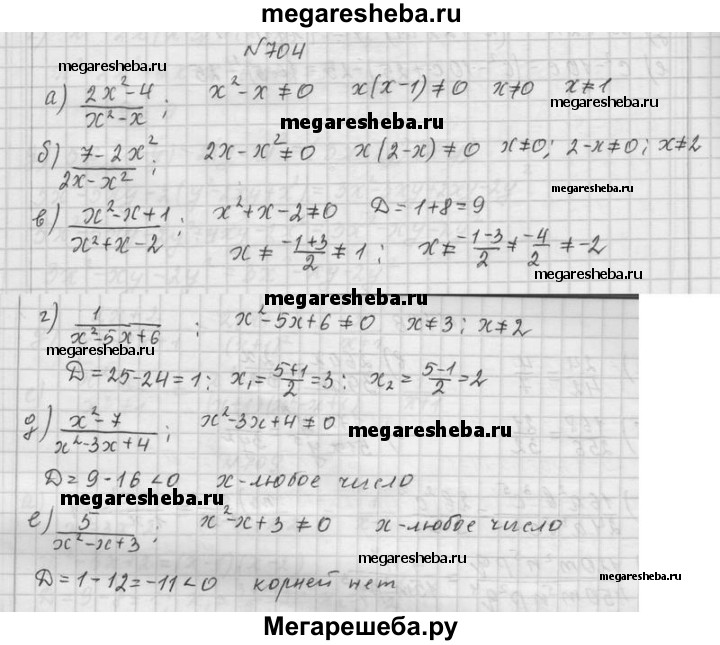 megaresheba.ru
№704
megaresheba.ru
а) (2x²-4)/(x²-x); x²-x≠0 x(x-1)≠0 x≠0 x≠1
megaresheba.ru
megaresheba.ru
б) (7-2x²)/(2x-x²); 2x-x²≠0 x(2-x)≠0 x≠0; 2-x≠0; x≠2
megaresheba.ru
megaresheba.ru
в) (x²-x+1)/(x²+x-2); x²+x-2≠0 Д=1+8=9
x≠(-1+3)/2≠1; x≠(-1-3)/2≠(-4)/2≠-2
megaresheba.ru
megaresheba.ru
г) 1/(x²-5x+6); x²-5x+6≠0 x≠3; x≠2
megaresheba.ru
Д=25-24=1; x₁=(5+1)/2=3; x₂=(5-1)/2=2
д) (x²-7)/(x²-3x+4); x²-3x+4≠0
megaresheba.ru
Д=9-16<0 x-любое число
megaresheba.ru
е) 5/(x²-x+3); x²-x+3≠0 x-любое число
megaresheba.ru
Д=1-12=-11<0 корней нет
megaresheba.ru
Мегарешеба.ру